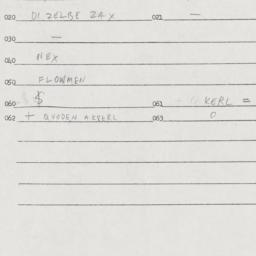 020 DI ZELBE ZAX 021 —
030 —
040 NEX
050 FLOWMEN
060 $ 061 KERL =
062 + QUODEN AKKERL 063 0